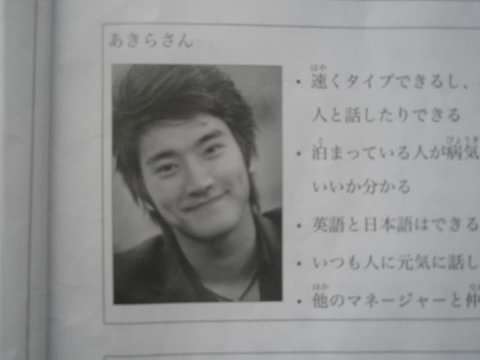 あきらさん
・速くタイプできるし、
はや
人と話したりできる
・泊まっている人が病気
と びょうき
いいか分かる
・英語と日本語はできる
・いつも人に元気に話し
・他のマネージャーと仲
ほか なか